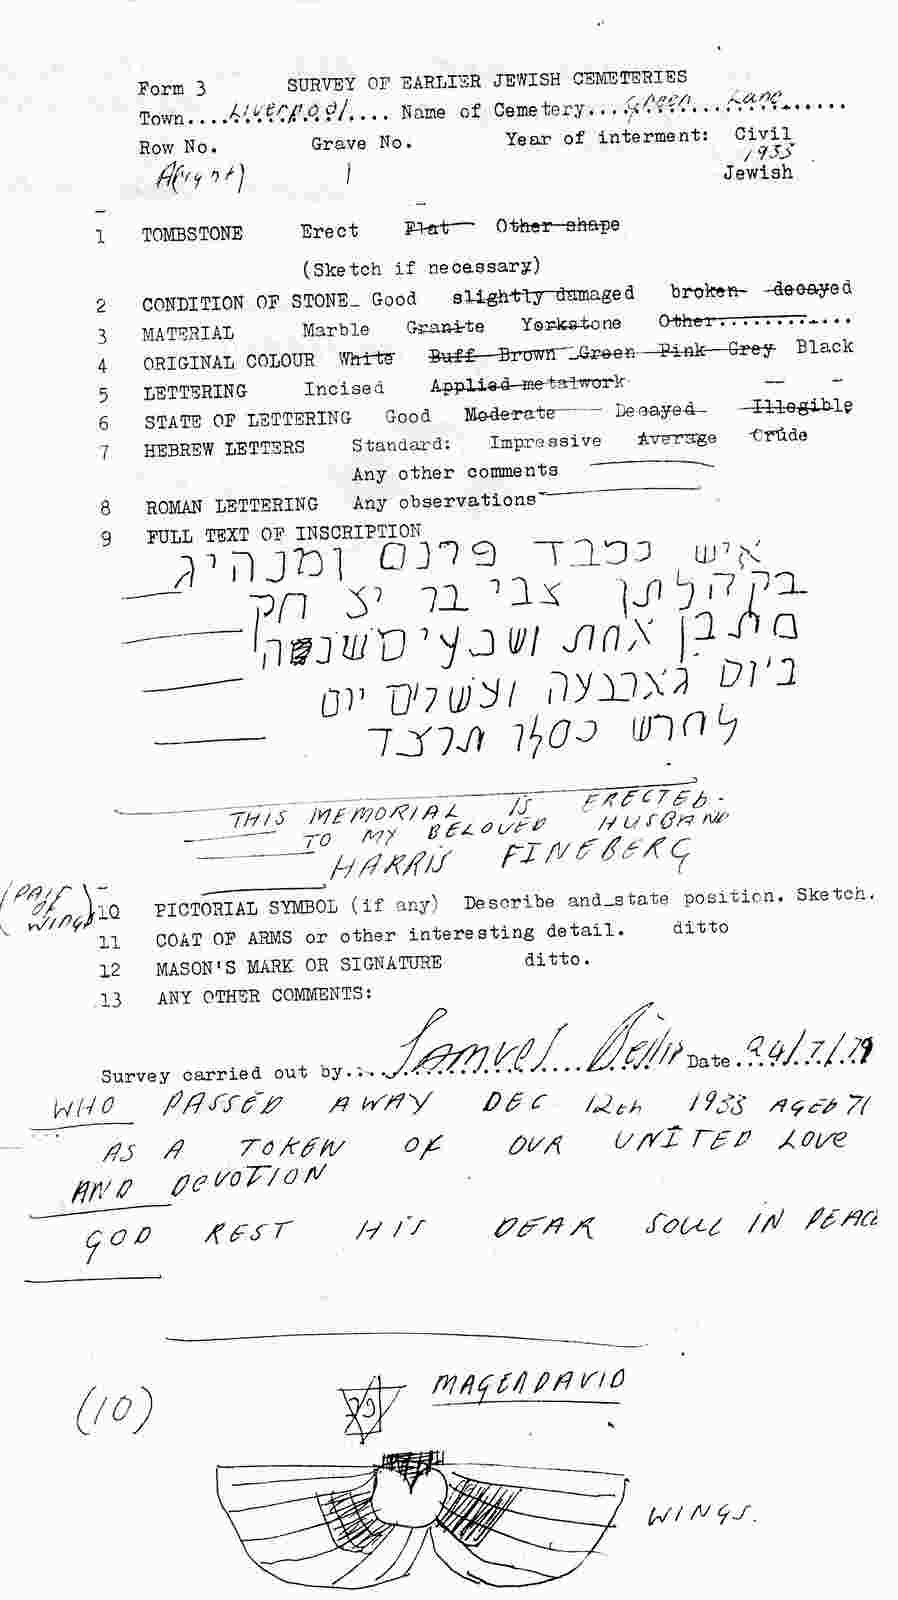 Form 3 SURVEY OF EARLIER JEWISH CEMETERIES
Town....Liverpool.... Name of Cemetery....Green Lane.....
Row No. Grave No. Year of interment: Civil
1933
A(right) 1 Jewish
1 TOMBSTONE Erect Flat Other shape
(Sketch if necessary)
2 CONDITION OF STONE Good slightly damaged broken decayed
3 MATERIAL Marble Granite Yorkstone Other............
4 ORIGINAL COLOUR White Buff Brown Green Pink Grey Black
5 LETTERING Incised Applied metalwork
6 STATE OF LETTERING Good Moderate Decayed Illegible
7 HEBREW LETTERS Standard: Impressive Average Crude
Any other comments
8 ROMAN LETTERING Any observations
9 FULL TEXT OF INSCRIPTION
איש נכבד פרנס ומנהיג
בקהלתן צבי בר יצחק
מת בן אחת ושבעים שנה
ביום ג ארבעה ועשרים יום
לחדש כסלו תרצד
THIS MEMORIAL IS ERECTED
TO MY BELOVED HUSBAND
HARRIS FINEBERG
(PAIR OF WINGS)
10 PICTORIAL SYMBOL (if any) Describe and state position. Sketch.
11 COAT OF ARMS or other interesting detail. ditto
12 MASON'S MARK OR SIGNATURE ditto.
13 ANY OTHER COMMENTS:
Survey carried out by....Samuel Beilin Date 24/7/79
WHO PASSED AWAY DEC 12th 1933 AGED 71
AS A TOKEN OF OUR UNITED LOVE
AND DEVOTION
GOD REST HIS DEAR SOUL IN PEACE
(10) MAGENDAVID
פנ
WINGS.